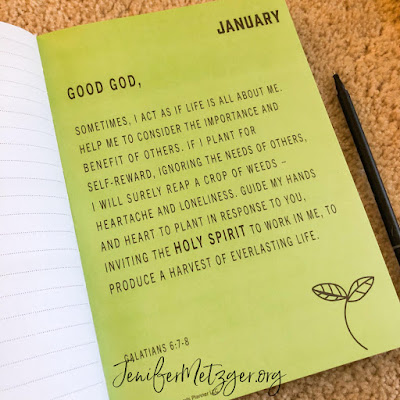 JANUARY
GOOD GOD,
SOMETIMES, I ACT AS IF LIFE IS ALL ABOUT ME.
HELP ME TO CONSIDER THE IMPORTANCE AND
BENEFIT OF OTHERS. IF I PLANT FOR
SELF-REWARD, IGNORING THE NEEDS OF OTHERS,
I WILL SURELY REAP A CROP OF WEEDS –
HEARTACHE AND LONELINESS. GUIDE MY HANDS
AND HEART TO PLANT IN RESPONSE TO YOU,
INVITING THE HOLY SPIRIT TO WORK IN ME, TO
PRODUCE A HARVEST OF EVERLASTING LIFE.
GALATIANS 6:7-8
JeniferMetzger.org